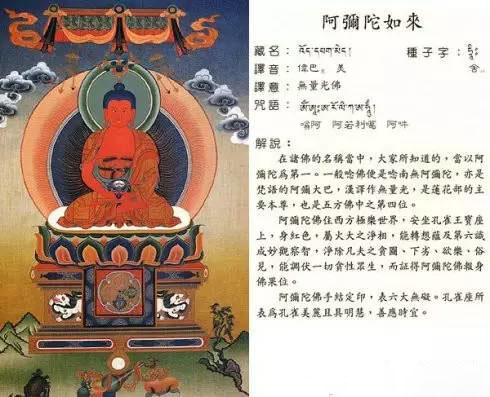 阿彌陀如來
藏名：འོད་དཔག་མེད། 種子字：ཧྲཱིཿ
譯音：偉巴。美 舍
譯意：無量光佛
咒語：
嗡阿 阿若利噶 阿吽
解說：
在諸佛的名稱當中，大家所知道的，當以阿
彌陀為第一。一般唸佛便是唸南無阿彌陀，亦是
梵語的阿彌大巴，漢譯作無量光，是蓮花部的主
要本尊，也是五方佛中之第四位。
阿彌陀佛住西方極樂世界，安坐孔雀王寶座
上，身紅色，屬火大之淨相，能轉想蘊及第六識
成妙觀察智，淨除凡夫之貪圖、下劣、欲樂、俗
見，能調伏一切貪性眾生，而証得阿彌陀佛報身
佛果位。
阿彌陀佛手結定印，表六大無礙。孔雀座所
表為孔雀美麗且具明慧，善應時宜。